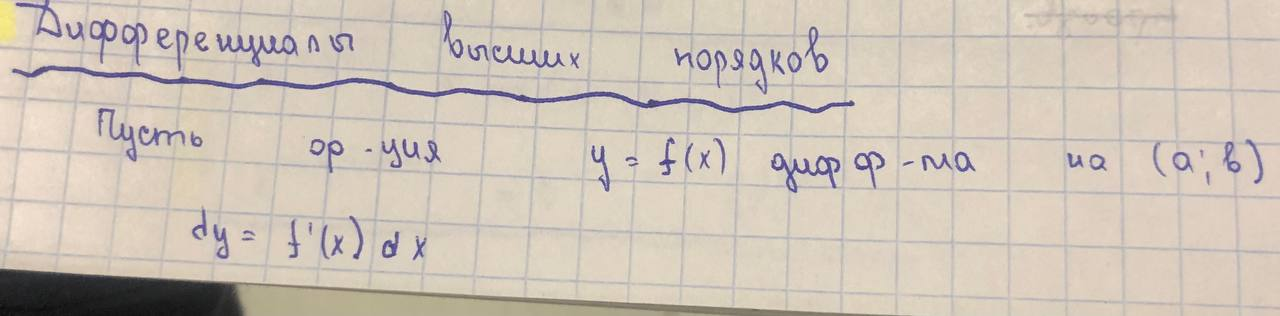 Дифференциалы высших порядков
Пусть ф-ция y = f(x) дифф-ма на (a; b)
dy = f'(x) dx